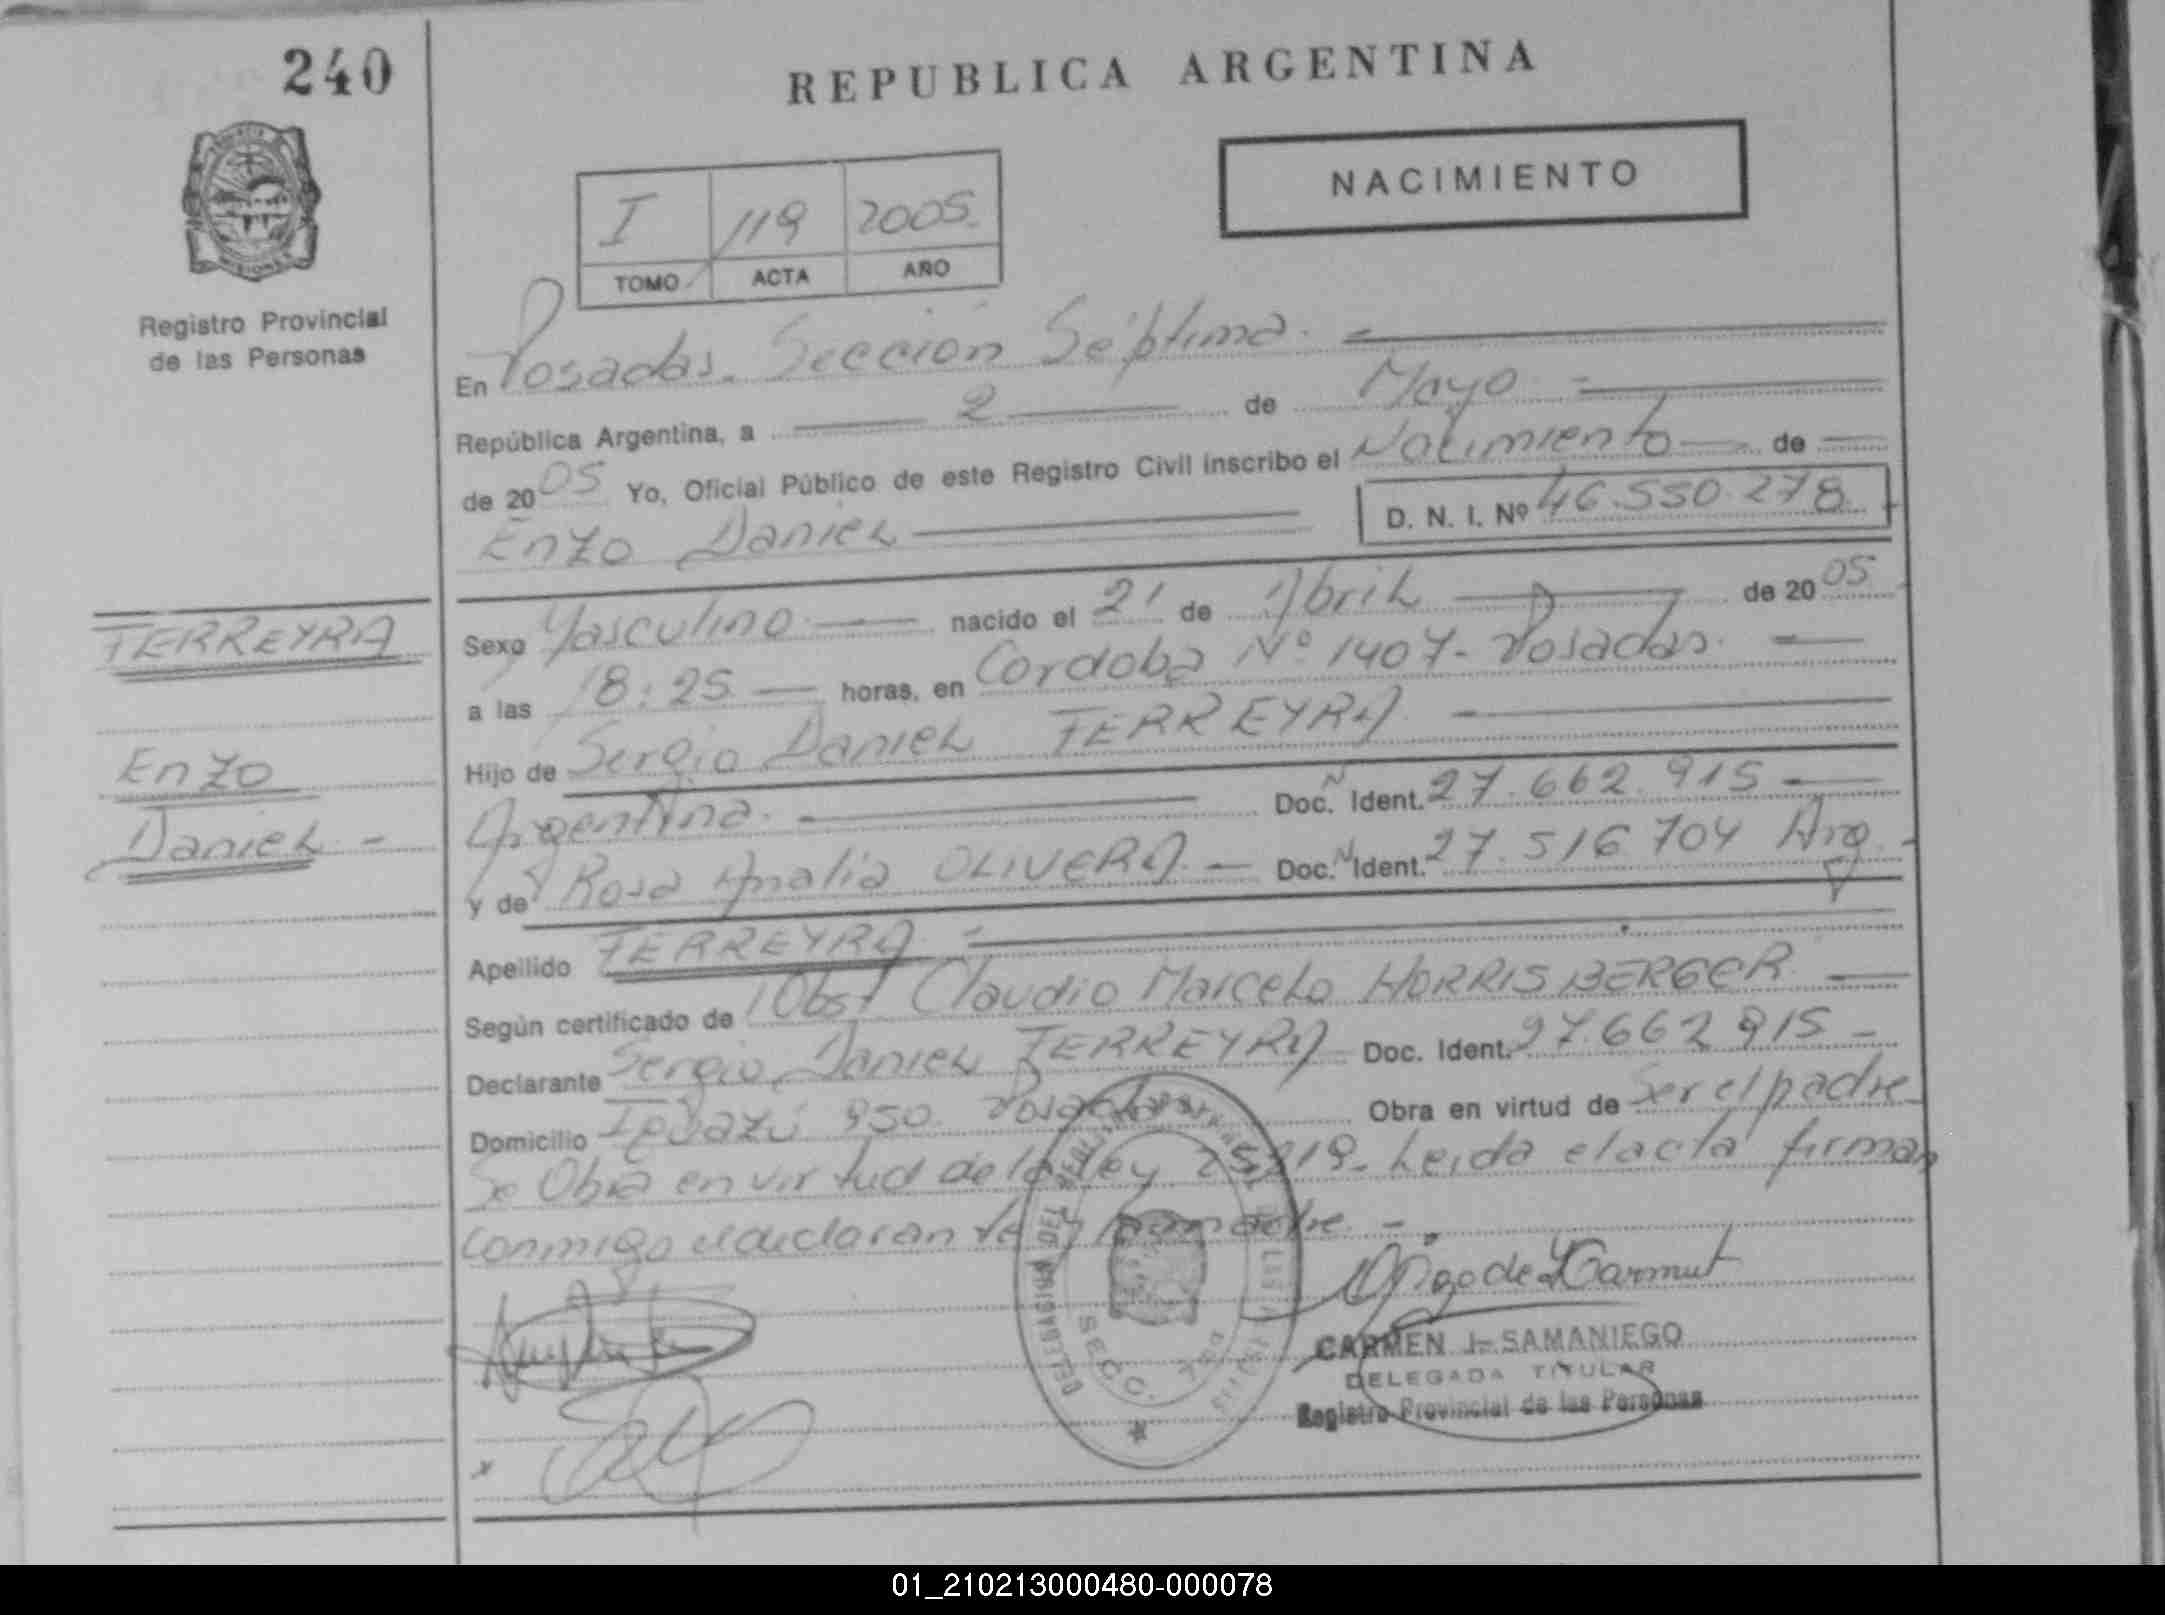 240
REPUBLICA ARGENTINA
NACIMIENTO
I 119 2005
TOMO ACTA AÑO
Registro Provincial
de las Personas
En Posadas. Sección Séptima.
República Argentina, a 2 de Mayo
de 2005 Yo, Oficial Público de este Registro Civil inscribo el Nacimiento de
Enzo Daniel
D. N. I. Nº 46.550.278
TERREYRA
Enzo
Daniel
Sexo Masculino nacido el 21 de Abril de 2005
a las 18:25 horas, en Cordoba Nº 1407- Posadas.
Hijo de Sergio Daniel FERREYRA
Argentina. Doc. Ident. 27.662.915
y de Rosa Amalia OLIVERA Doc. Ident. 27.516 704 Arg.
Apellido FERREYRA
Según certificado de Obst Claudio Marcelo HORRISBERGER
Declarante Sergio Daniel FERREYRA Doc. Ident. 27.662 915
Domicilio Iguazú 950. Posadas Obra en virtud de Ser el padre
Se Obra en virtud de la ley 25819. Leida el acta firman
conmigo el declarante y la madre
DELEGACION DEL
SECC. 7ma
CARMEN J. SAMANIEGO
DELEGADA TITULAR
Registro Provincial de las Personas
01_210213000480-000078